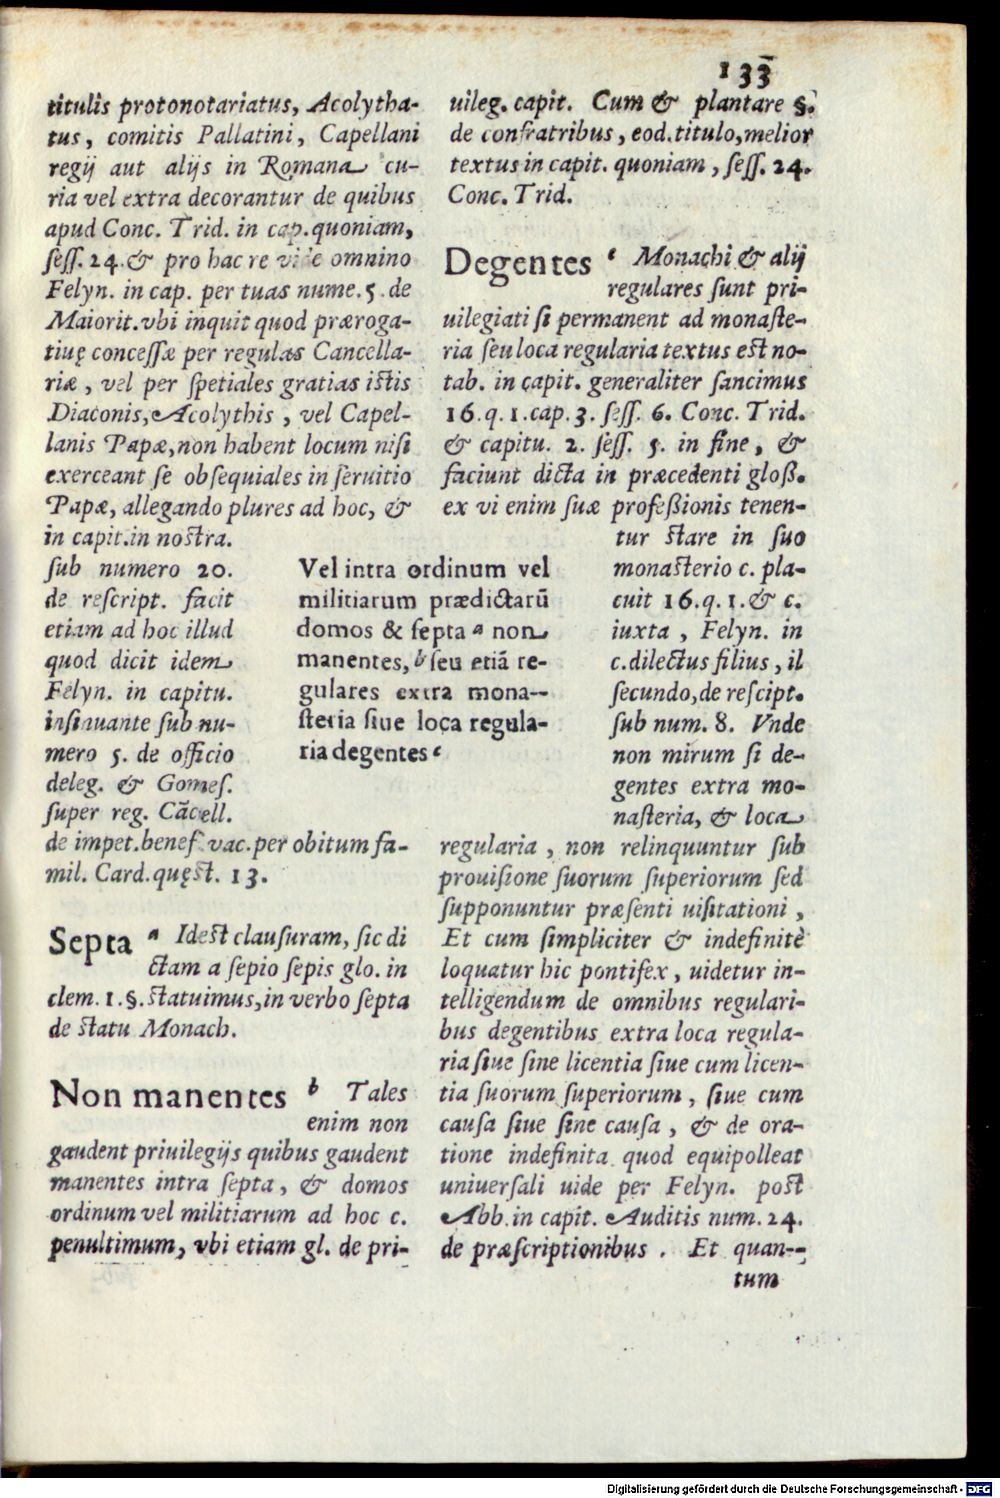 133
titulis protonotariatus, Acolytha-
tus, comitis Pallatini, Capellani
regij aut alijs in Romana cu-
ria vel extra decorantur de quibus
apud Conc. Trid. in cap. quoniam,
sess. 24. & pro hac re vide omnino
Felyn. in cap. per tuas nume. 5. de
Maiorit. vbi inquit quod præroga-
tiuę concessæ per regulas Cancella-
riæ, vel per spetiales gratias istis
Diaconis, Acolythis, vel Capel-
lanis Papæ, non habent locum nisi
exerceant se obsequiales in seruitio
Papæ, allegando plures ad hoc, &
in capit. in nostra.
sub numero 20.
de rescript. facit
etiam ad hoc illud
quod dicit idem
Felyn. in capitu.
insinuante sub nu-
mero 5. de officio
deleg. & Gomes.
super reg. Cācell.
de impet. benef. vac. per obitum fa-
mil. Card. quęst. 13.
Septa a Idest clausuram, sic di
ctam a sepio sepis glo. in
clem. 1. §. statuimus, in verbo septa
de statu Monach.
Non manentes b Tales
enim non
gaudent priuilegijs quibus gaudent
manentes intra septa, & domos
ordinum vel militiarum ad hoc c.
penultimum, vbi etiam gl. de pri-
Vel intra ordinum vel
militiarum prædictarū
domos & septa a non
manentes, b seu etiā re-
gulares extra mona-
steria siue loca regula-
ria degentes c
uileg. capit. Cum & plantare §.
de confratribus, eod. titulo, melior
textus in capit. quoniam, sess. 24.
Conc. Trid.
Degentes c Monachi & alij
regulares sunt pri-
uilegiati si permanent ad monaste-
ria seu loca regularia textus est no-
tab. in capit. generaliter sancimus
16. q. 1. cap. 3. sess. 6. Conc. Trid.
& capitu. 2. sess. 5. in fine, &
faciunt dicta in præcedenti gloß.
ex vi enim suæ profeßionis tenen-
tur stare in suo
monasterio c. pla-
cuit 16. q. 1. & c.
iuxta, Felyn. in
c. dilectus filius, il
secundo, de rescipt.
sub num. 8. Vnde
non mirum si de-
gentes extra mo-
nasteria, & loca
regularia, non relinquuntur sub
prouisione suorum superiorum sed
supponuntur præsenti uisitationi,
Et cum simpliciter & indefinitè
loquatur hic pontifex, uidetur in-
telligendum de omnibus regulari-
bus degentibus extra loca regula-
ria siue sine licentia siue cum licen-
tia suorum superiorum, siue cum
causa siue sine causa, & de ora-
tione indefinita quod equipolleat
uniuersali uide per Felyn. post
Abb. in capit. Auditis num. 24.
de præscriptionibus. Et quan-
tum
Digitalisierung gefördert durch die Deutsche Forschungsgemeinschaft - DFG